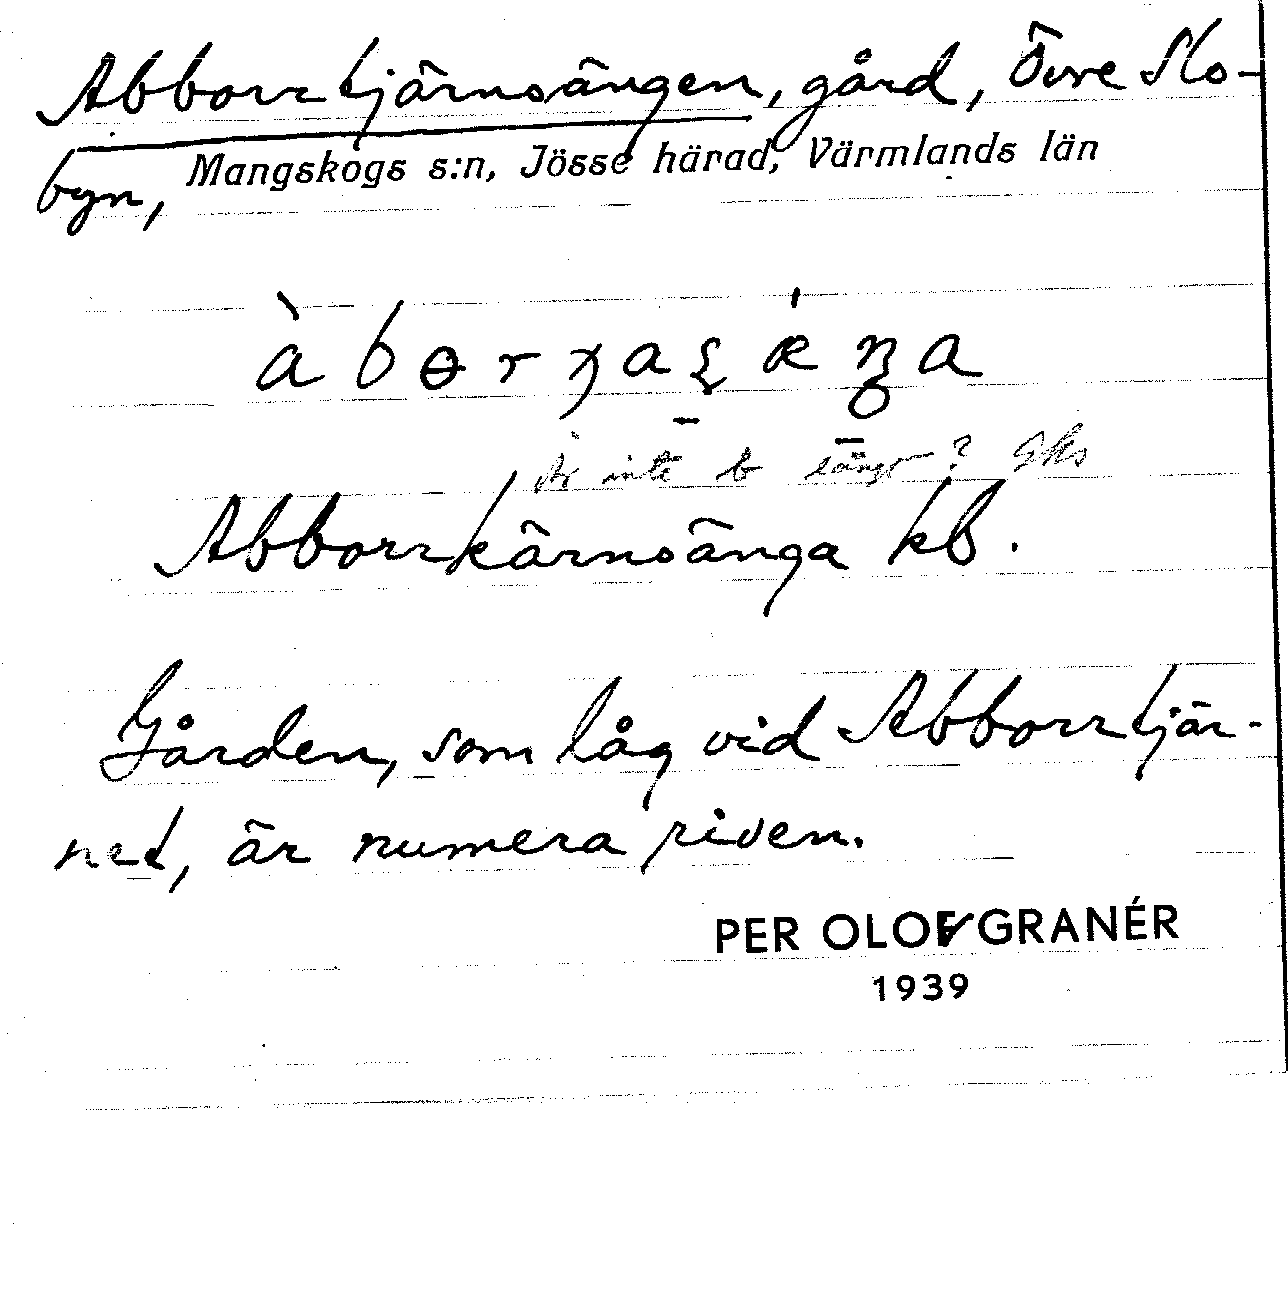 Abborrtjärnsängen, gård, Övre Slo-
byn, Mangskogs s:n, Jösse härad, Värmlands län
Är inte b långt?
Abborrkärnsänga kb.
Gården, som låg vid Abborrtjär-
net, är numera riven.
PER OLOF GRANÉR
1939